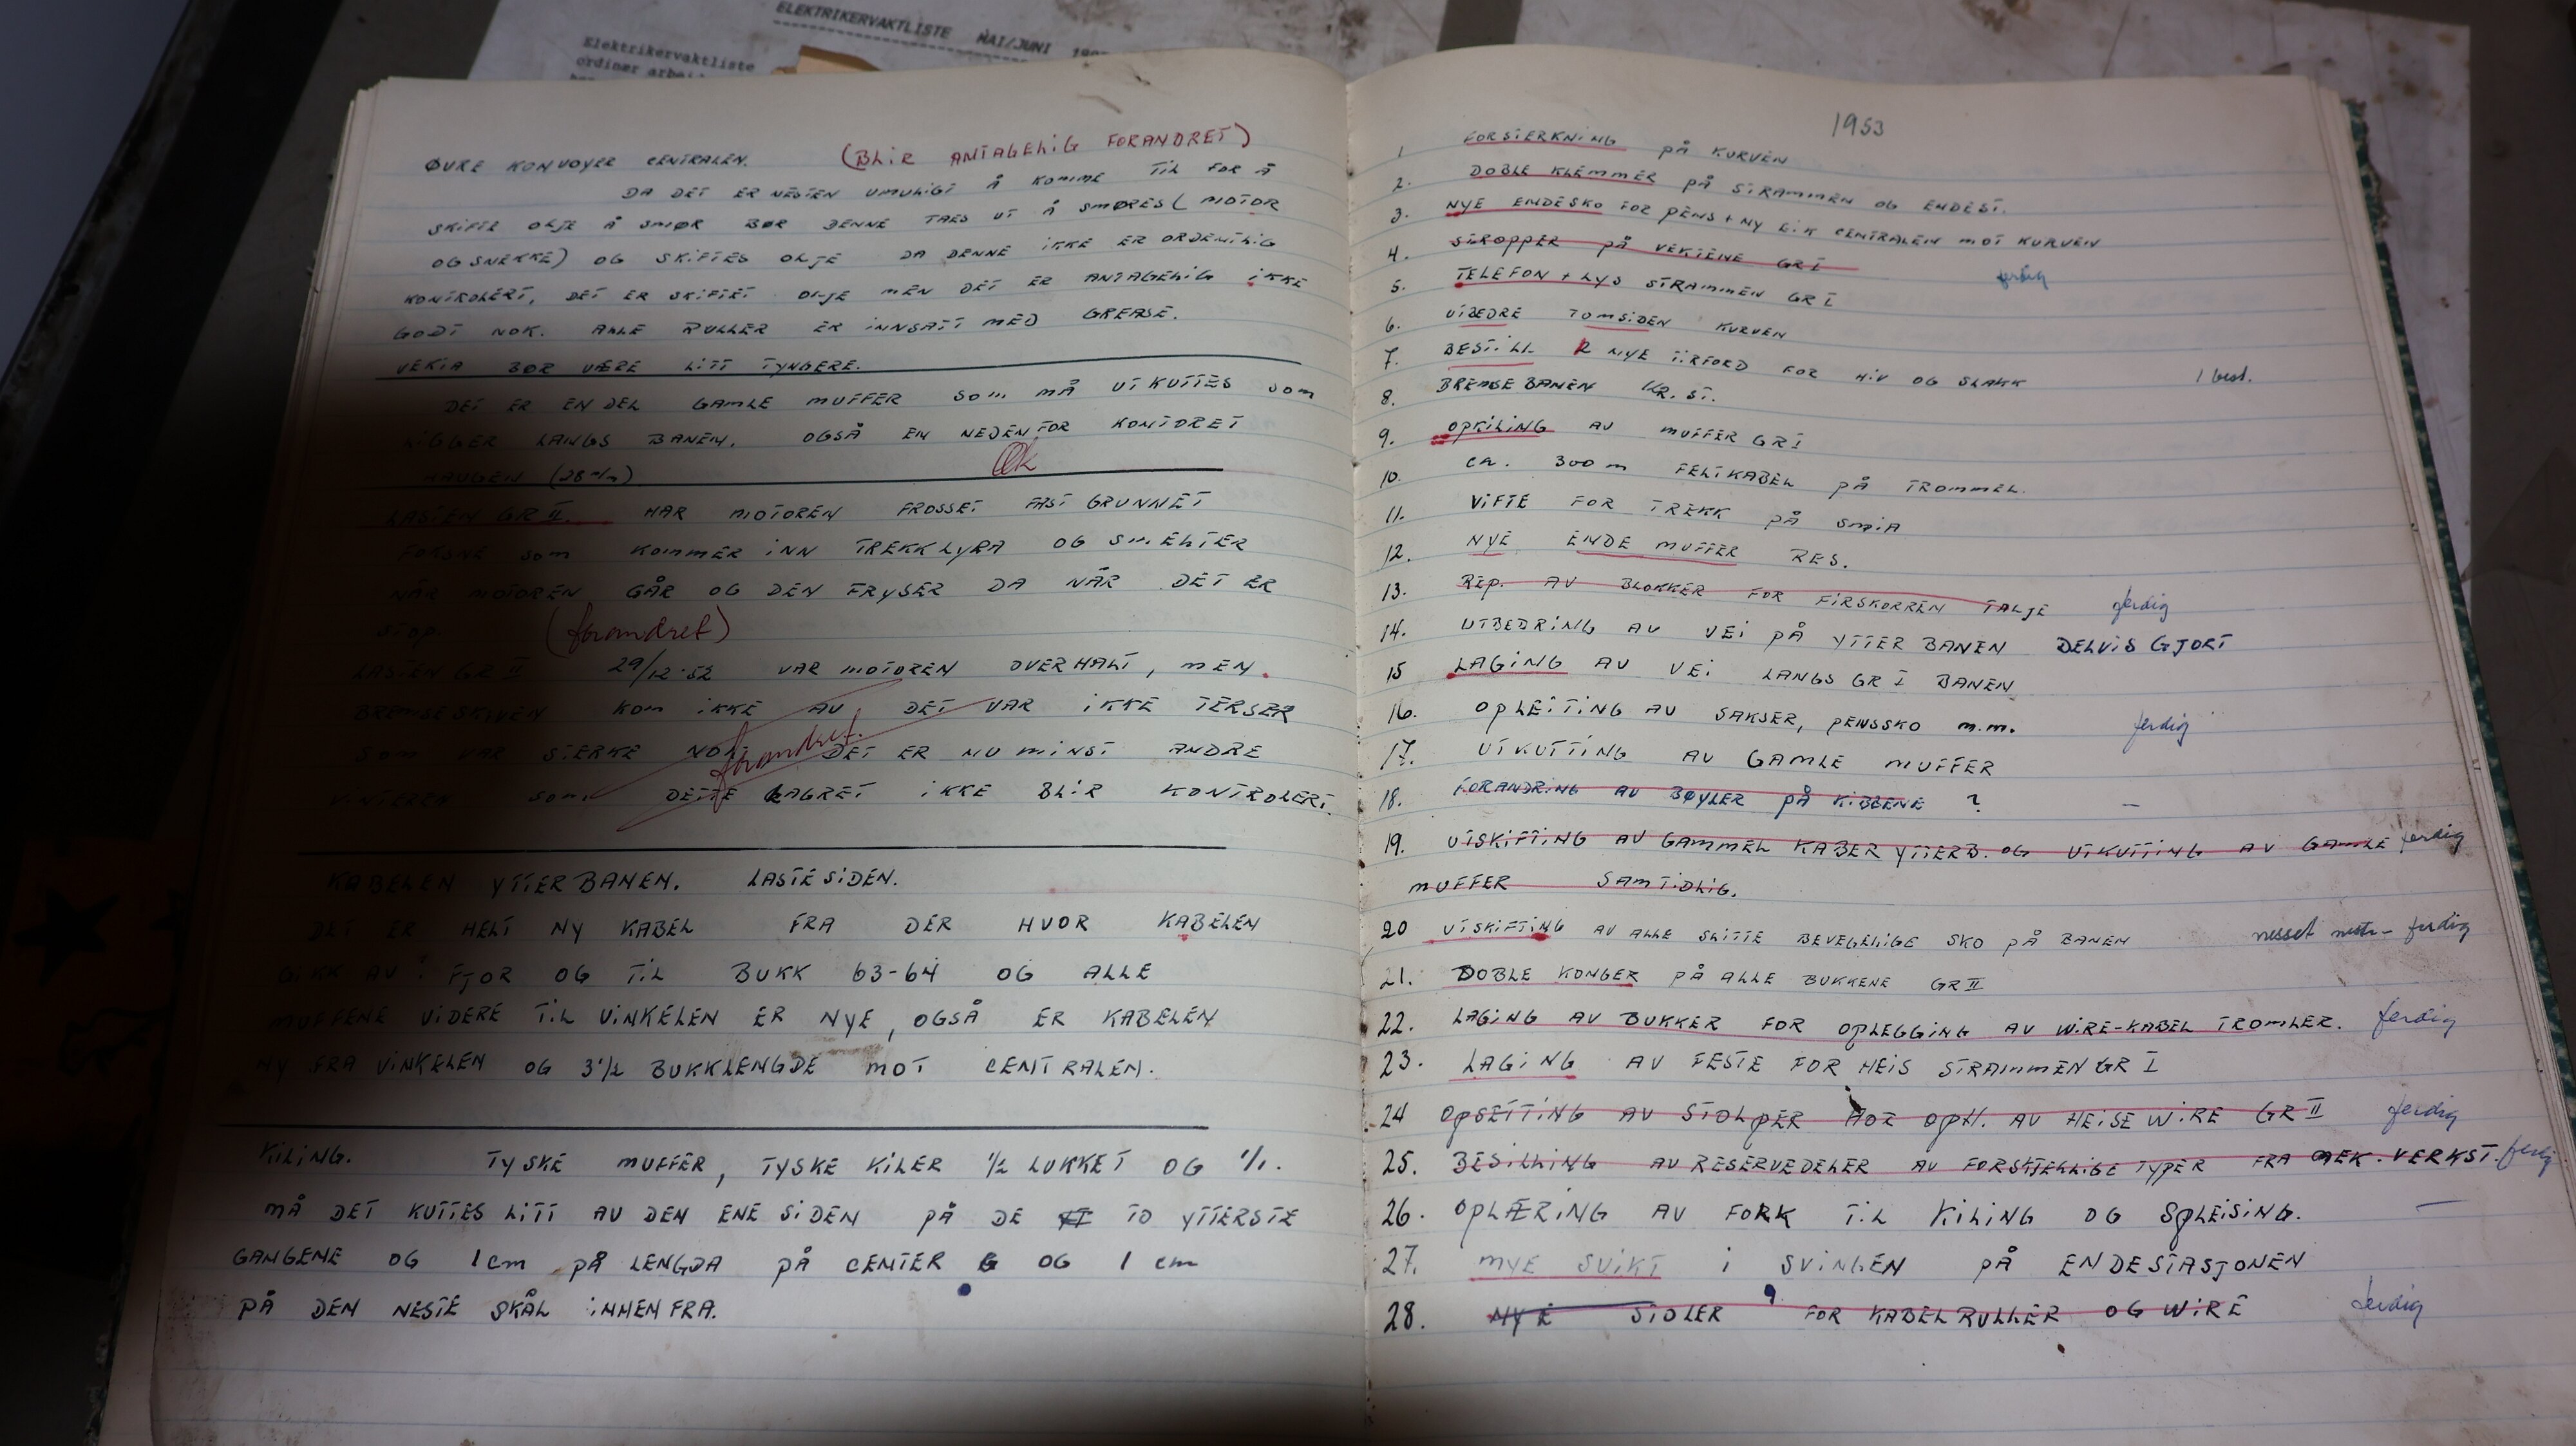 ELEKTRIKERVAKTLISTE MAI/JUNI
Elektrikervaktliste
ordinær
ØVRE KONVOYER CENTRALEN. (BLIR ANTAGELIG FORANDRET)
DA DET ER NESTEN UMULIGT Å KOMME TIL FOR Å
SKIFTE OLJE Å SMØR BØR DENNE TAES UT Å SMØRES (MOTOR
OG SNEKKE) OG SKIFTES OLJE DA DENNE IKKE ER ORDENTLIG
KONTROLERT, DET ER SKIFTET OLJE MEN DET ER ANTAGELIG IKKE
GODT NOK. ALLE RULLER ER INNSATT MED GREASE.
VEKTA BØR VÆRE LITT TYNGERE.
DET ER EN DEL GAMLE MUFFER SOM MÅ UTKUTTES SOM
LIGGER LANGS BANEN. OGSÅ EN NEDENFOR KONTORET
HAUGEN OK
LASTEN GR II. HAR MOTOREN FROSSET FAST GRUNNET
SOM KOMMER INN TREKKLYRA OG SMELTER
NÅR MOTOREN GÅR OG DEN FRYSER DA NÅR DET ER
STOP. (forandret)
LASTEN GR II 29/12-52 VAR MOTOREN OVERHALT, MEN
BREMSESKIVEN KOM IKKE AV DET VAR IKKE TERSER
SOM VAR STERKE NOK. forandret. DET ER NU MINST ANDRE
VINTEREN SOM DETTE LAGRET IKKE BLIR KONTROLERT.
KABELEN YTTERBANEN. LASTESIDEN.
DET ER HELT NY KABEL FRA DER HVOR KABELEN
GIKK AV I FJOR OG TIL BUKK 63-64 OG ALLE
MUFFENE VIDERE TIL VINKELEN ER NYE, OGSÅ ER KABELEN
NY FRA VINKELEN OG 3 1/2 BUKKLENGDE MOT CENTRALEN.
KILING. TYSKE MUFFER, TYSKE KILER 1/2 LUKKET OG 1/1.
MÅ DET KUTTES LITT AV DEN ENE SIDEN PÅ DE TO YTTERSTE
GANGENE OG 1 cm PÅ LENGDA PÅ CENTER OG 1 cm
PÅ DEN NESTE SKÅL INNENFRA.
1953
1 FORSTERKNING PÅ KURVEN
2. DOBLE KLEMMER PÅ STRAMMEN OG ENDEST.
3. NYE ENDESKO FOR PENS + NY EIK CENTRALEN MOT KURVEN
4. STROPPER PÅ VEKTENE GR I ferdig
5. TELEFON + LYS STRAMMEN GR I
6. UTBEDRE TOMSIDEN KURVEN
7. BESTILL 2 NYE TIRFORD FOR HIV OG SLAKK 1 best.
8. BREMSEBANEN KR. ST.
9. OPKILING AV MUFFER GR I
10. CA. 300 m FELTKABEL PÅ TROMMEL.
11. VIFTE FOR TREKK PÅ SMIA
12. NYE ENDE MUFFER RES.
13. REP. AV BLOKKER FOR FIRSKORREN TALJE ferdig
14. UTBEDRING AV VEI PÅ YTTER BANEN DELVIS GJORT
15 LAGING AV VEI LANGS GR I BANEN
16. OPLETTING AV SAKSER, PENSSKO M.M. ferdig
17. UTKUTTING AV GAMLE MUFFER
18. FORANDRING AV BØYLER PÅ KIBBENE ? —
19. UTSKIFTING AV GAMMEL KABEL YTTERB. OG UTKUTTING AV GAMLE ferdig
MUFFER SAMTIDLIG.
20 UTSKIFTING AV ALLE SLITTE BEVEGELIGE SKO PÅ BANEN ferdig
21. DOBLE KONGER PÅ ALLE BUKKENE GR II
22. LAGING AV BUKKER FOR OPLEGGING AV WIRE-KABEL TROMLER. ferdig
23. LAGING AV FESTE FOR HEIS STRAMMEN GR I
24 OPSETTING AV STOLPER OPH. AV HEISE WIRE GR II ferdig
25. BESTILLING AV RESERVEDELER AV FORSKJELLIGE TYPER FRA MEK. VERKST. ferdig
26. OPLÆRING AV FORK TIL KILING OG SPLEISING. —
27. MYE SVIKT I SVINGEN PÅ ENDESTASJONEN
28. NYE STOLER FOR KABELRULLER OG WIRE ferdig